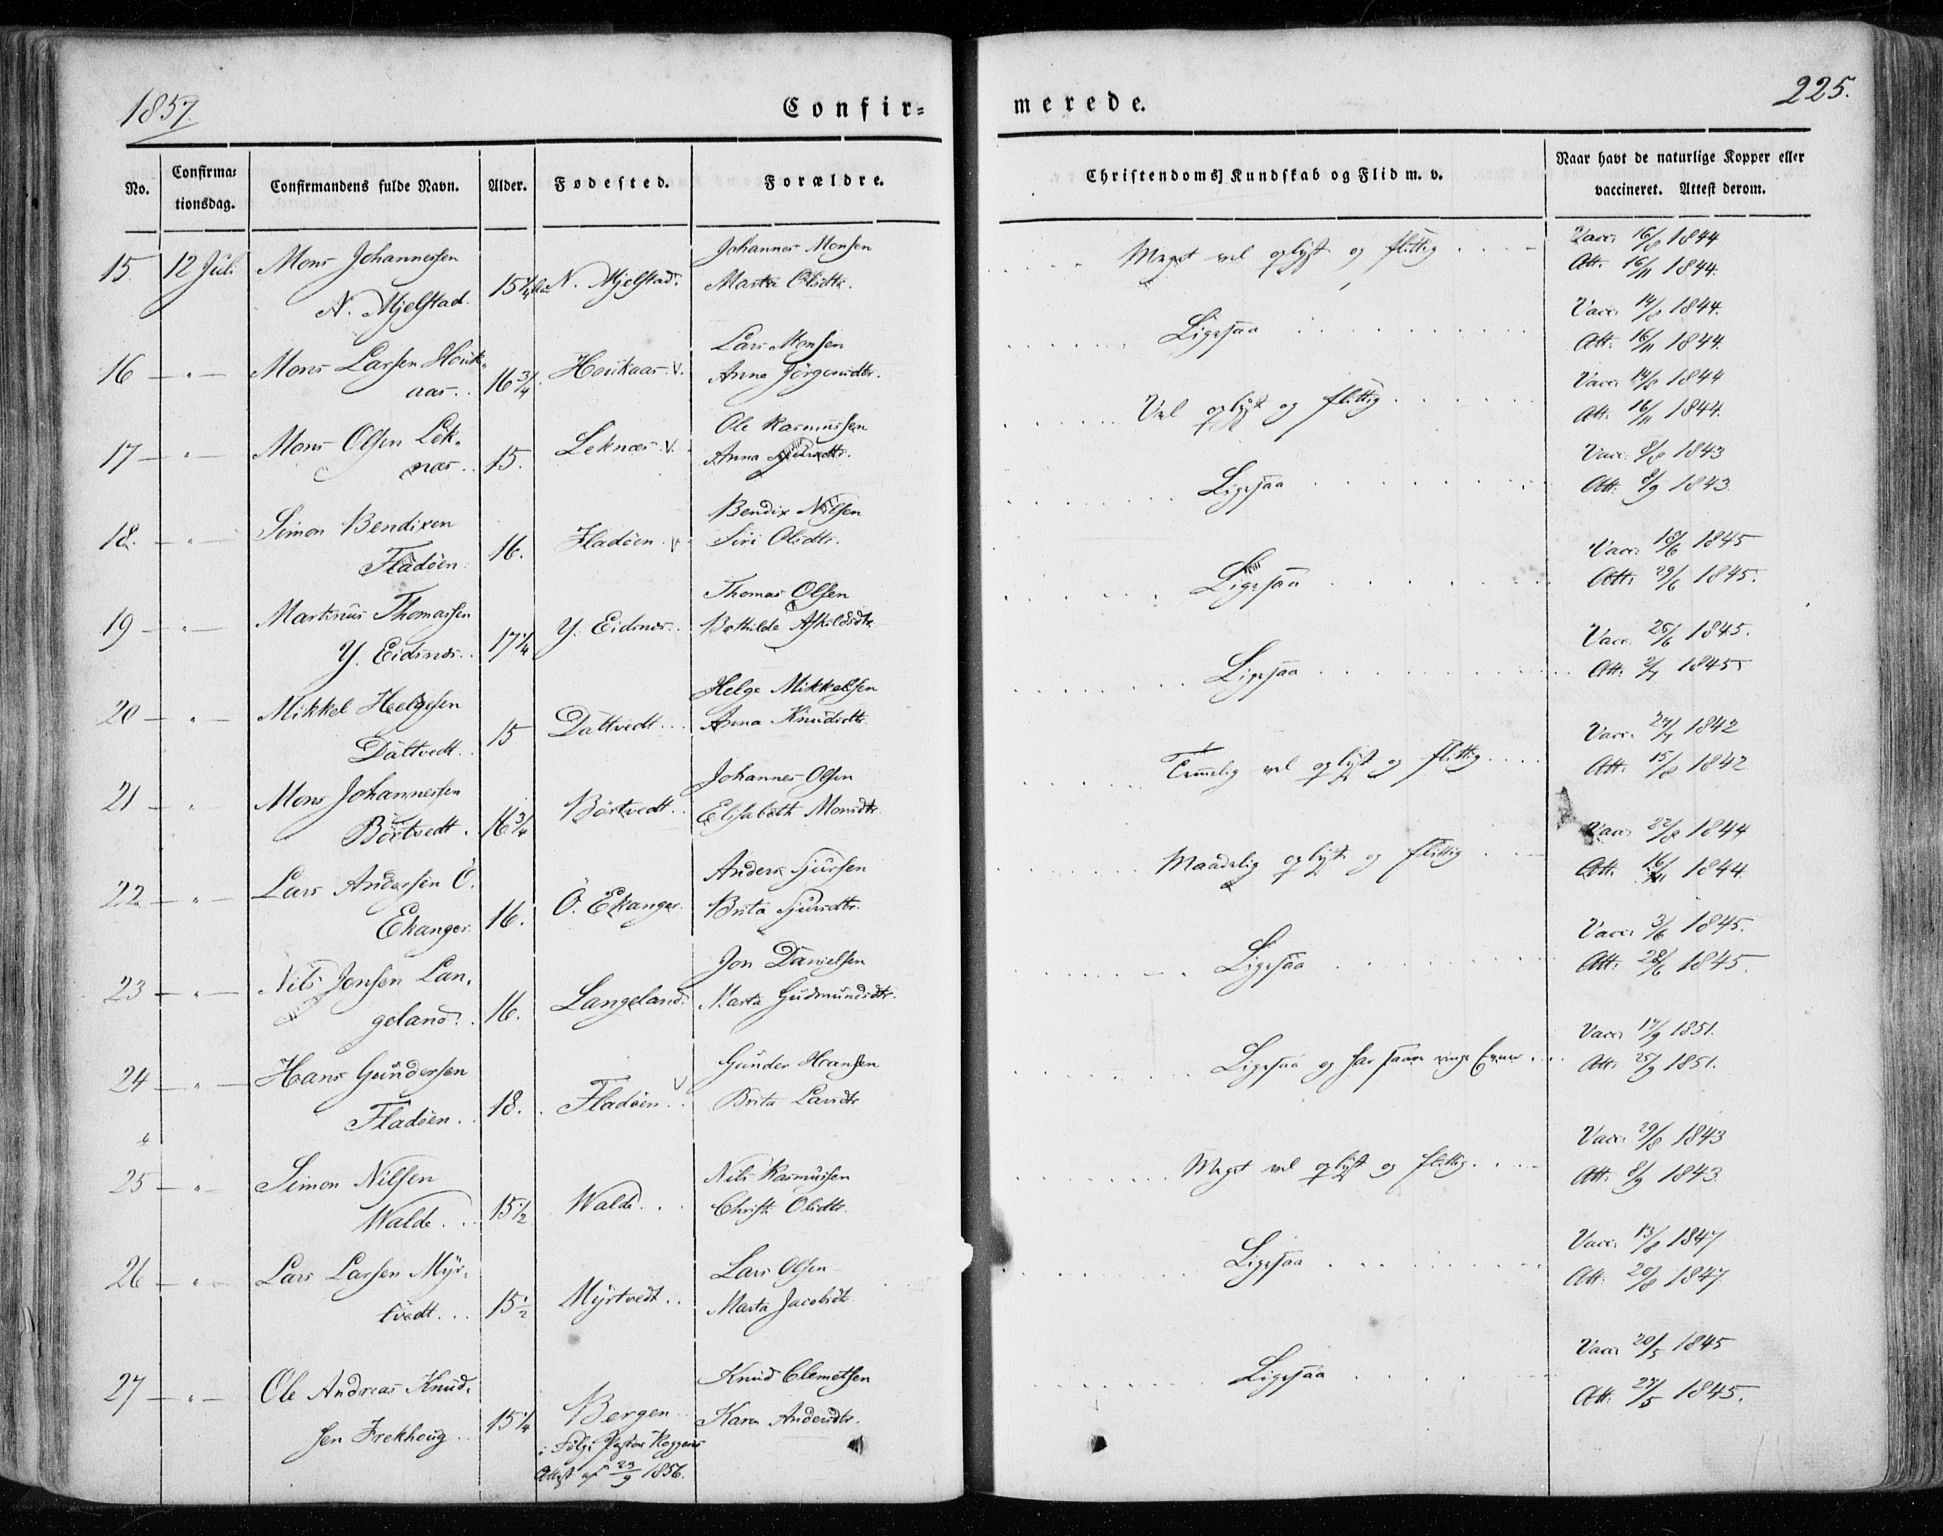 1857.
Confir=
merede.
225.
No.
Confirma=
tionsdag.
Confirmandens fulde Navn.
Alder.
Fødested.
Forældre.
Christendoms Kundskab og Flid m. v.
Naar havt de naturlige Kopper eller
vaccineret. Attest derom.
15. 12 Juli Mons Johannessen
N. Mjelstad. 15 1/4 N. Mjelstad.
Johannes Monsen
Marta Olsdtr.
Meget vel oplyst og flittig
Vacc. 16/8 1844
Att. 16/11 1844.
16 — " — Mons Larsen Houk=
aas. 16 3/4 Houkaas. v.
Lars Monsen
Anna Jörgensdtr.
Ligesaa
Vacc. 14/8 1844.
Att. 16/11 1844.
17 — " — Mons Olsen Lek=
næs. 15. Leknæs. v.
Ole Rasmussen
Anna
Vel oplyst og flittig
Vacc. 14/8 1844
Att. 16/11 1844.
18. — " — Simon Bendixen
Fladöen. 16. Fladöen. v.
Bendix Nilsen
Siri Olsdtr.
Ligesaa
Vacc. 8/8 1843
Att. 8/9 1843.
19 — " — Martinus Thomassen
Y. Eidsnæs. 17 1/4 Y. Eidsnæs.
Thomas Olsen
Bothilde Askildsdtr.
Ligesaa
Vacc. 18/6 1845
Att. 29/6 1845.
20 — " — Mikkel Helgesen
Dåttvedt. 15 Dåttvedt.
Helge Mikkelsen
Anna Knudsdtr.
Ligesaa
Vacc. 26/6 1845.
Att. 2/7 1845
21 — " Mons Johannessen
Börtvedt. 16 3/4 Börtvedt.
Johannes Olsen
Elisabeth Monsdtr.
Temmelig vel oplyst og flittig
Vacc. 27/7 1842
Att. 15/8 1842
22 — " — Lars Andersen Ö.
Ekanger. 16. Ö. Ekanger.
Anders Sjursen
Brita Sjursdtr.
Maadelig oplyst og flittig
Vacc. 22/8 1844
Att. 16/11 1844.
23 — " — Nils Jonsen Lan=
geland. 16. Langeland.
Jon Danielsen
Marta Gudmundsdtr.
Ligesaa
Vacc. 3/6 1845.
Att. 28/6 1845.
24 — " — Hans Gundersen
Fladöen. 18. Fladöen. v
Gunder Hansen
Brita Larsdtr
Ligesaa og har saare ringe Evner
Vacc. 17/9 1851.
Att. 25/9 1851.
25 — " — Simon Nilsen
Walde. 15 1/2 Walde.
Nils Rasmussen
Christi Olsdtr.
Meget vel oplyst og flittig.
Vacc. 29/8 1843
Att. 8/9 1843.
26 — " — Lars Larsen Myr=
tvedt. 15 1/2 Myrtvedt.
Lars Olsen
Marta Jacobsdtr.
Ligesaa
Vacc. 13/8 1847
Att. 20/8 1847
27 — " — Ole Andreas Knud=
sen Frekhoug. 15 1/4 Bergen
i Följe Pastor
Attest af 23/9 1856.
Knud Clemetsen
Karen Andersdtr.
Ligesaa
Vacc. 20/5 1845
Att. 27/5 1845.